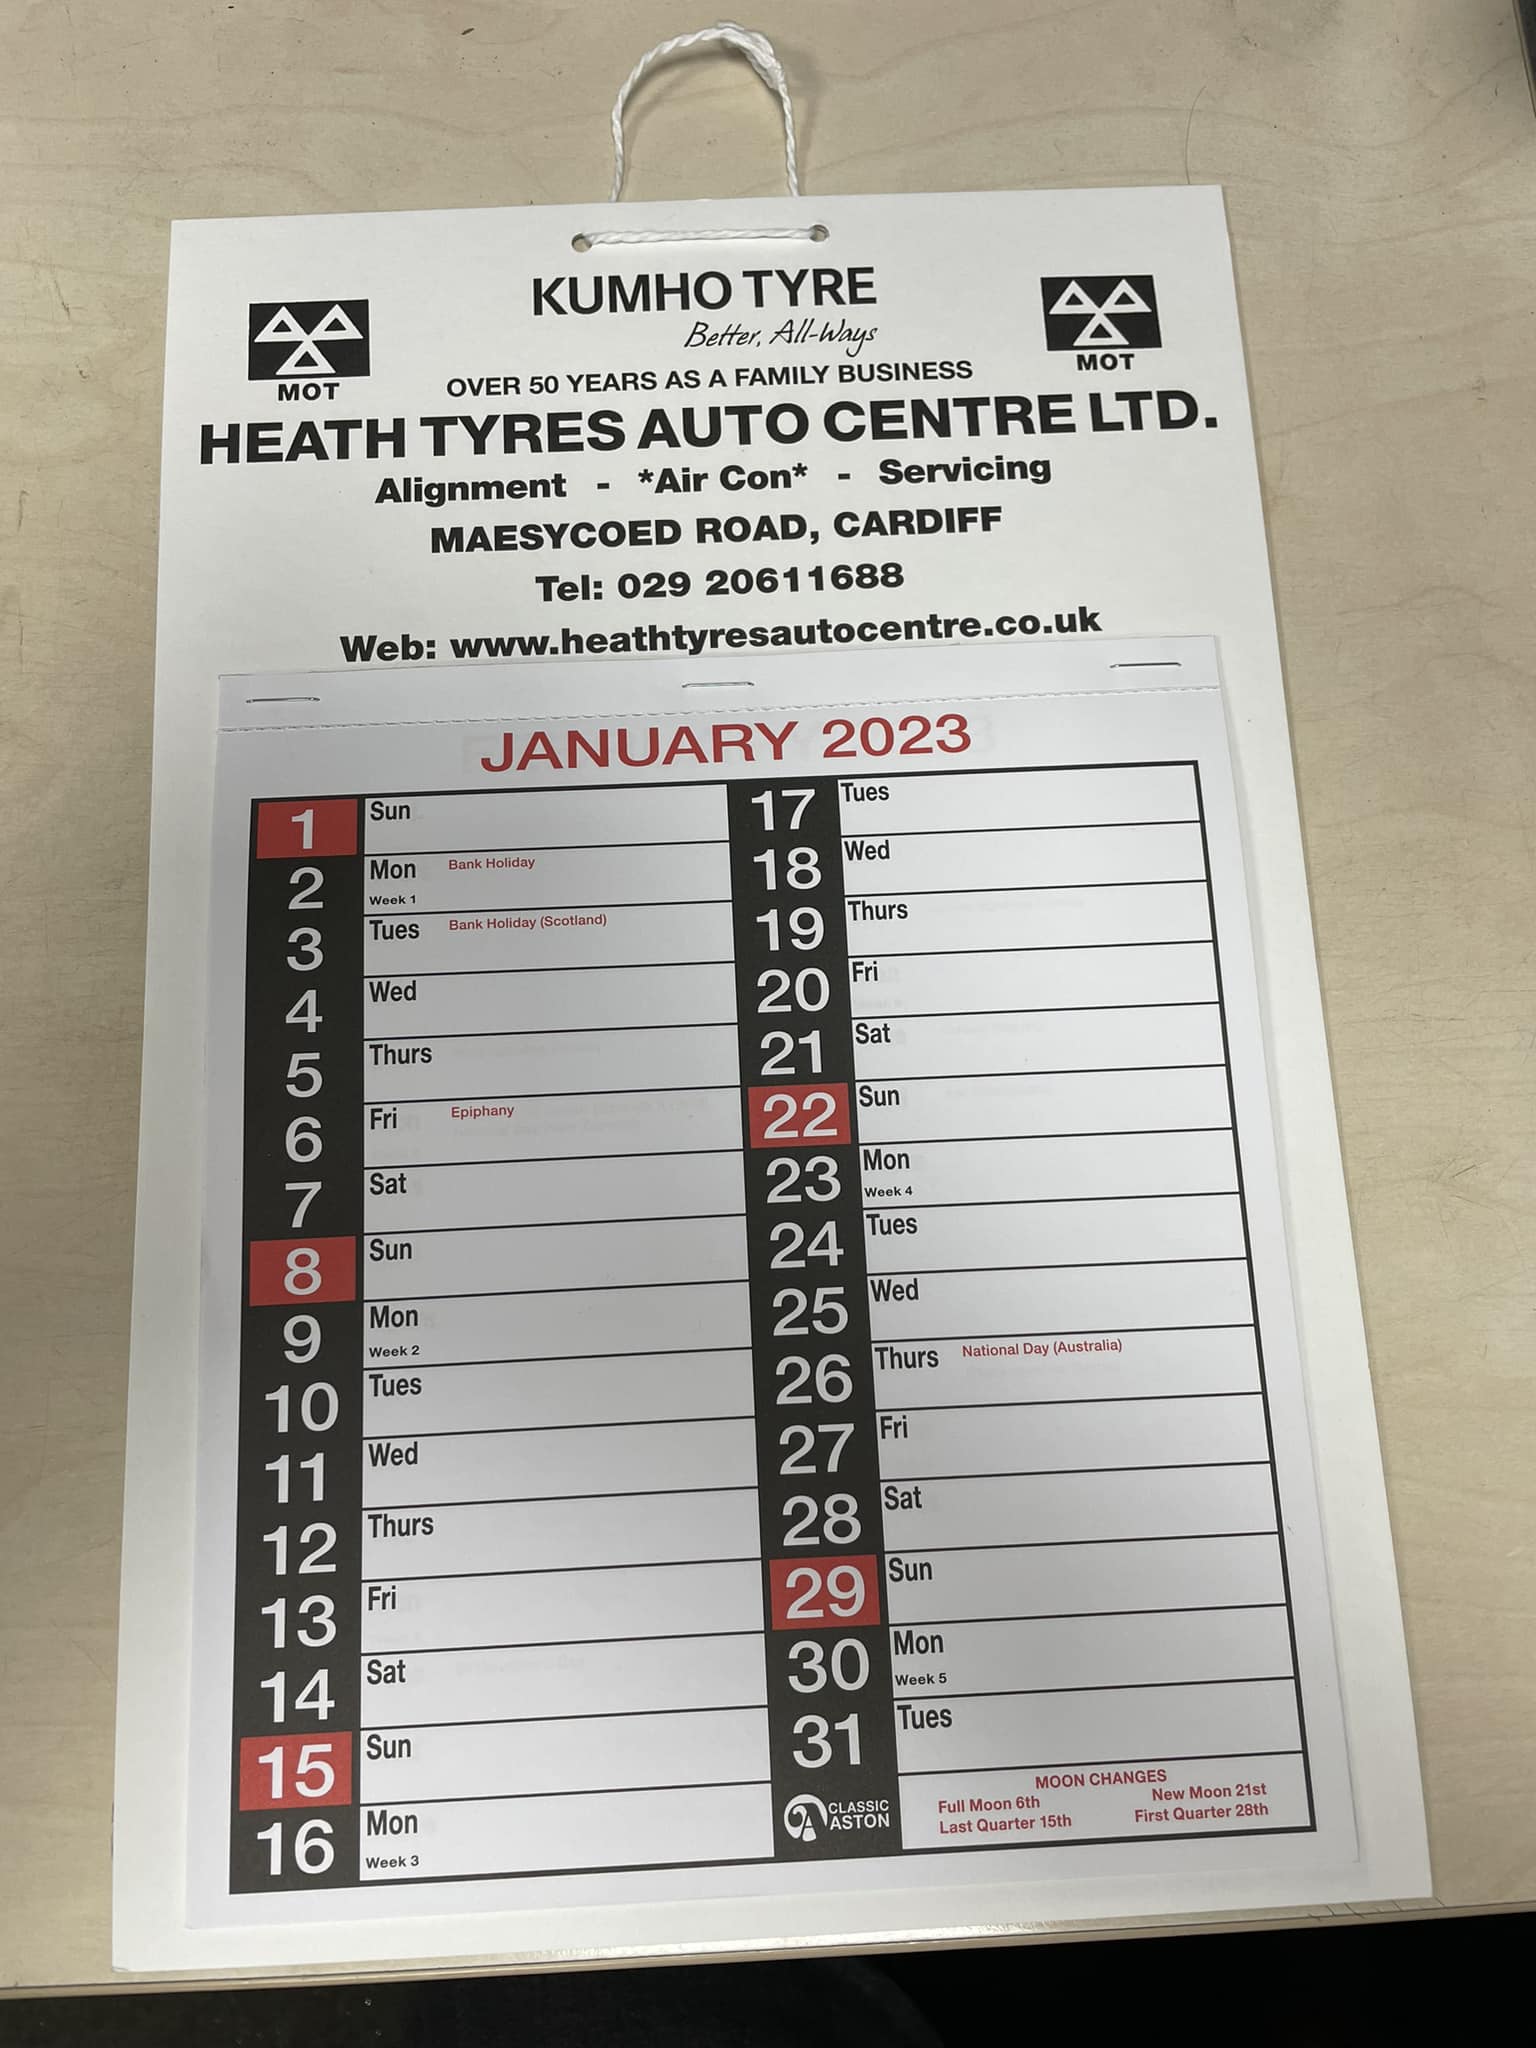 KUMHO TYRE
Better, All-Ways
MOT
MOT
OVER 50 YEARS AS A FAMILY BUSINESS
HEATH TYRES AUTO CENTRE LTD.
Alignment - *Air Con* - Servicing
MAESYCOED ROAD, CARDIFF
Tel: 029 20611688
Web: www.heathtyresautocentre.co.uk
JANUARY 2023
1 Sun
2 Mon Bank Holiday
Week 1
3 Tues Bank Holiday (Scotland)
4 Wed
5 Thurs
6 Fri Epiphany
7 Sat
8 Sun
9 Mon
Week 2
10 Tues
11 Wed
12 Thurs
13 Fri
14 Sat
15 Sun
16 Mon
Week 3
17 Tues
18 Wed
19 Thurs
20 Fri
21 Sat
22 Sun
23 Mon
Week 4
24 Tues
25 Wed
26 Thurs National Day (Australia)
27 Fri
28 Sat
29 Sun
30 Mon
Week 5
31 Tues
CLASSIC
ASTON
MOON CHANGES
Full Moon 6th New Moon 21st
Last Quarter 15th First Quarter 28th